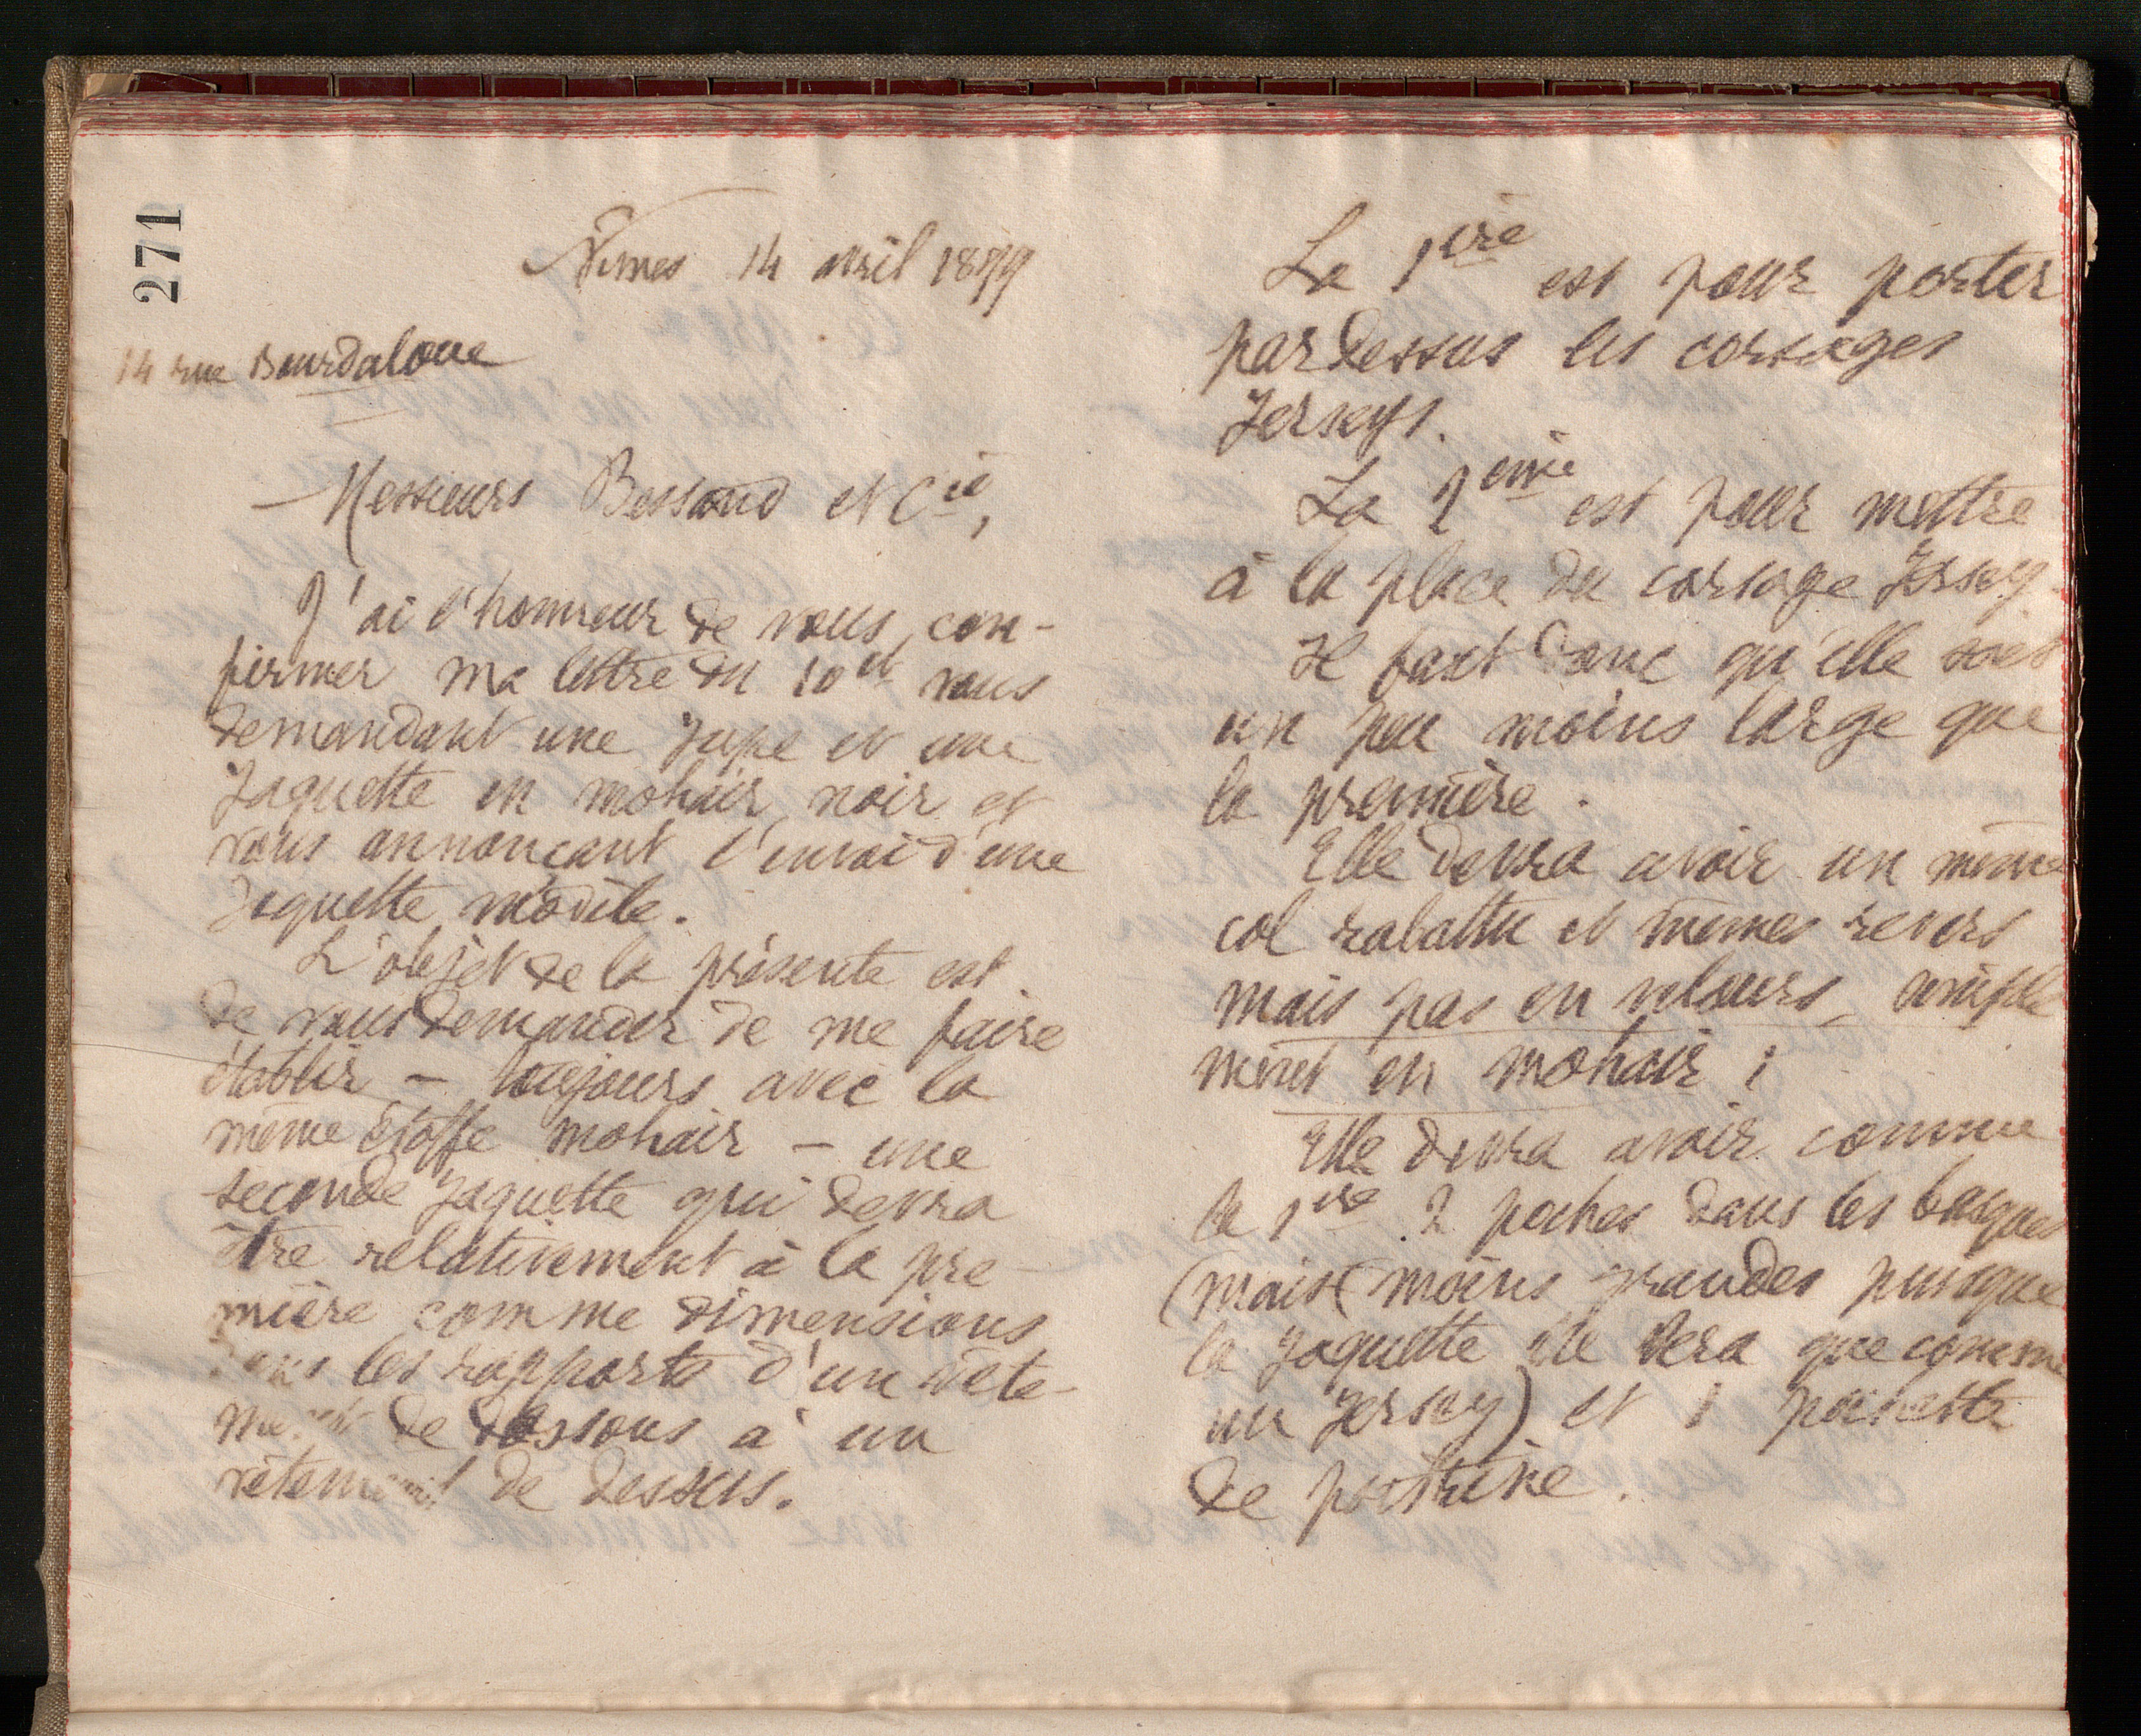 271
Nîmes 14 avril 1879
14 rue Bourdaloue
Messieurs Bessand et Cie,
J'ai l'honneur de vous con-
firmer ma lettre du 10 et vous
demandant une Jupe et une
Jaquette en mohair noir et
vous annonçant l'envoi d'une
Jaquette modèle.
L'objet de la présente est
de vous demander de me faire
établir – toujours avec la
même étoffe mohair – une
seconde Jaquette qui devra
être relativement à la pre-
mière comme dimensions
dans les rapports d'un vête-
ment de dessous à un
vêtement de dessus.
La 1ière est pour porter
pardessus les corsages
Jerseys.
La 2ème est pour mettre
à la place du corsage Jersey.
Il faut donc qu'elle soit
un peu moins large que
la première.
Elle devra avoir un même
col rabattu et mêmes revers
mais pas en velours, simple
ment en mohair;
Elle devra avoir comme
la 1ère 2 poches dans les basques
(mais (moins grandes puisque
la Jaquette ne sera que comme
un Jersey) et 1 pochette
de poitrine.